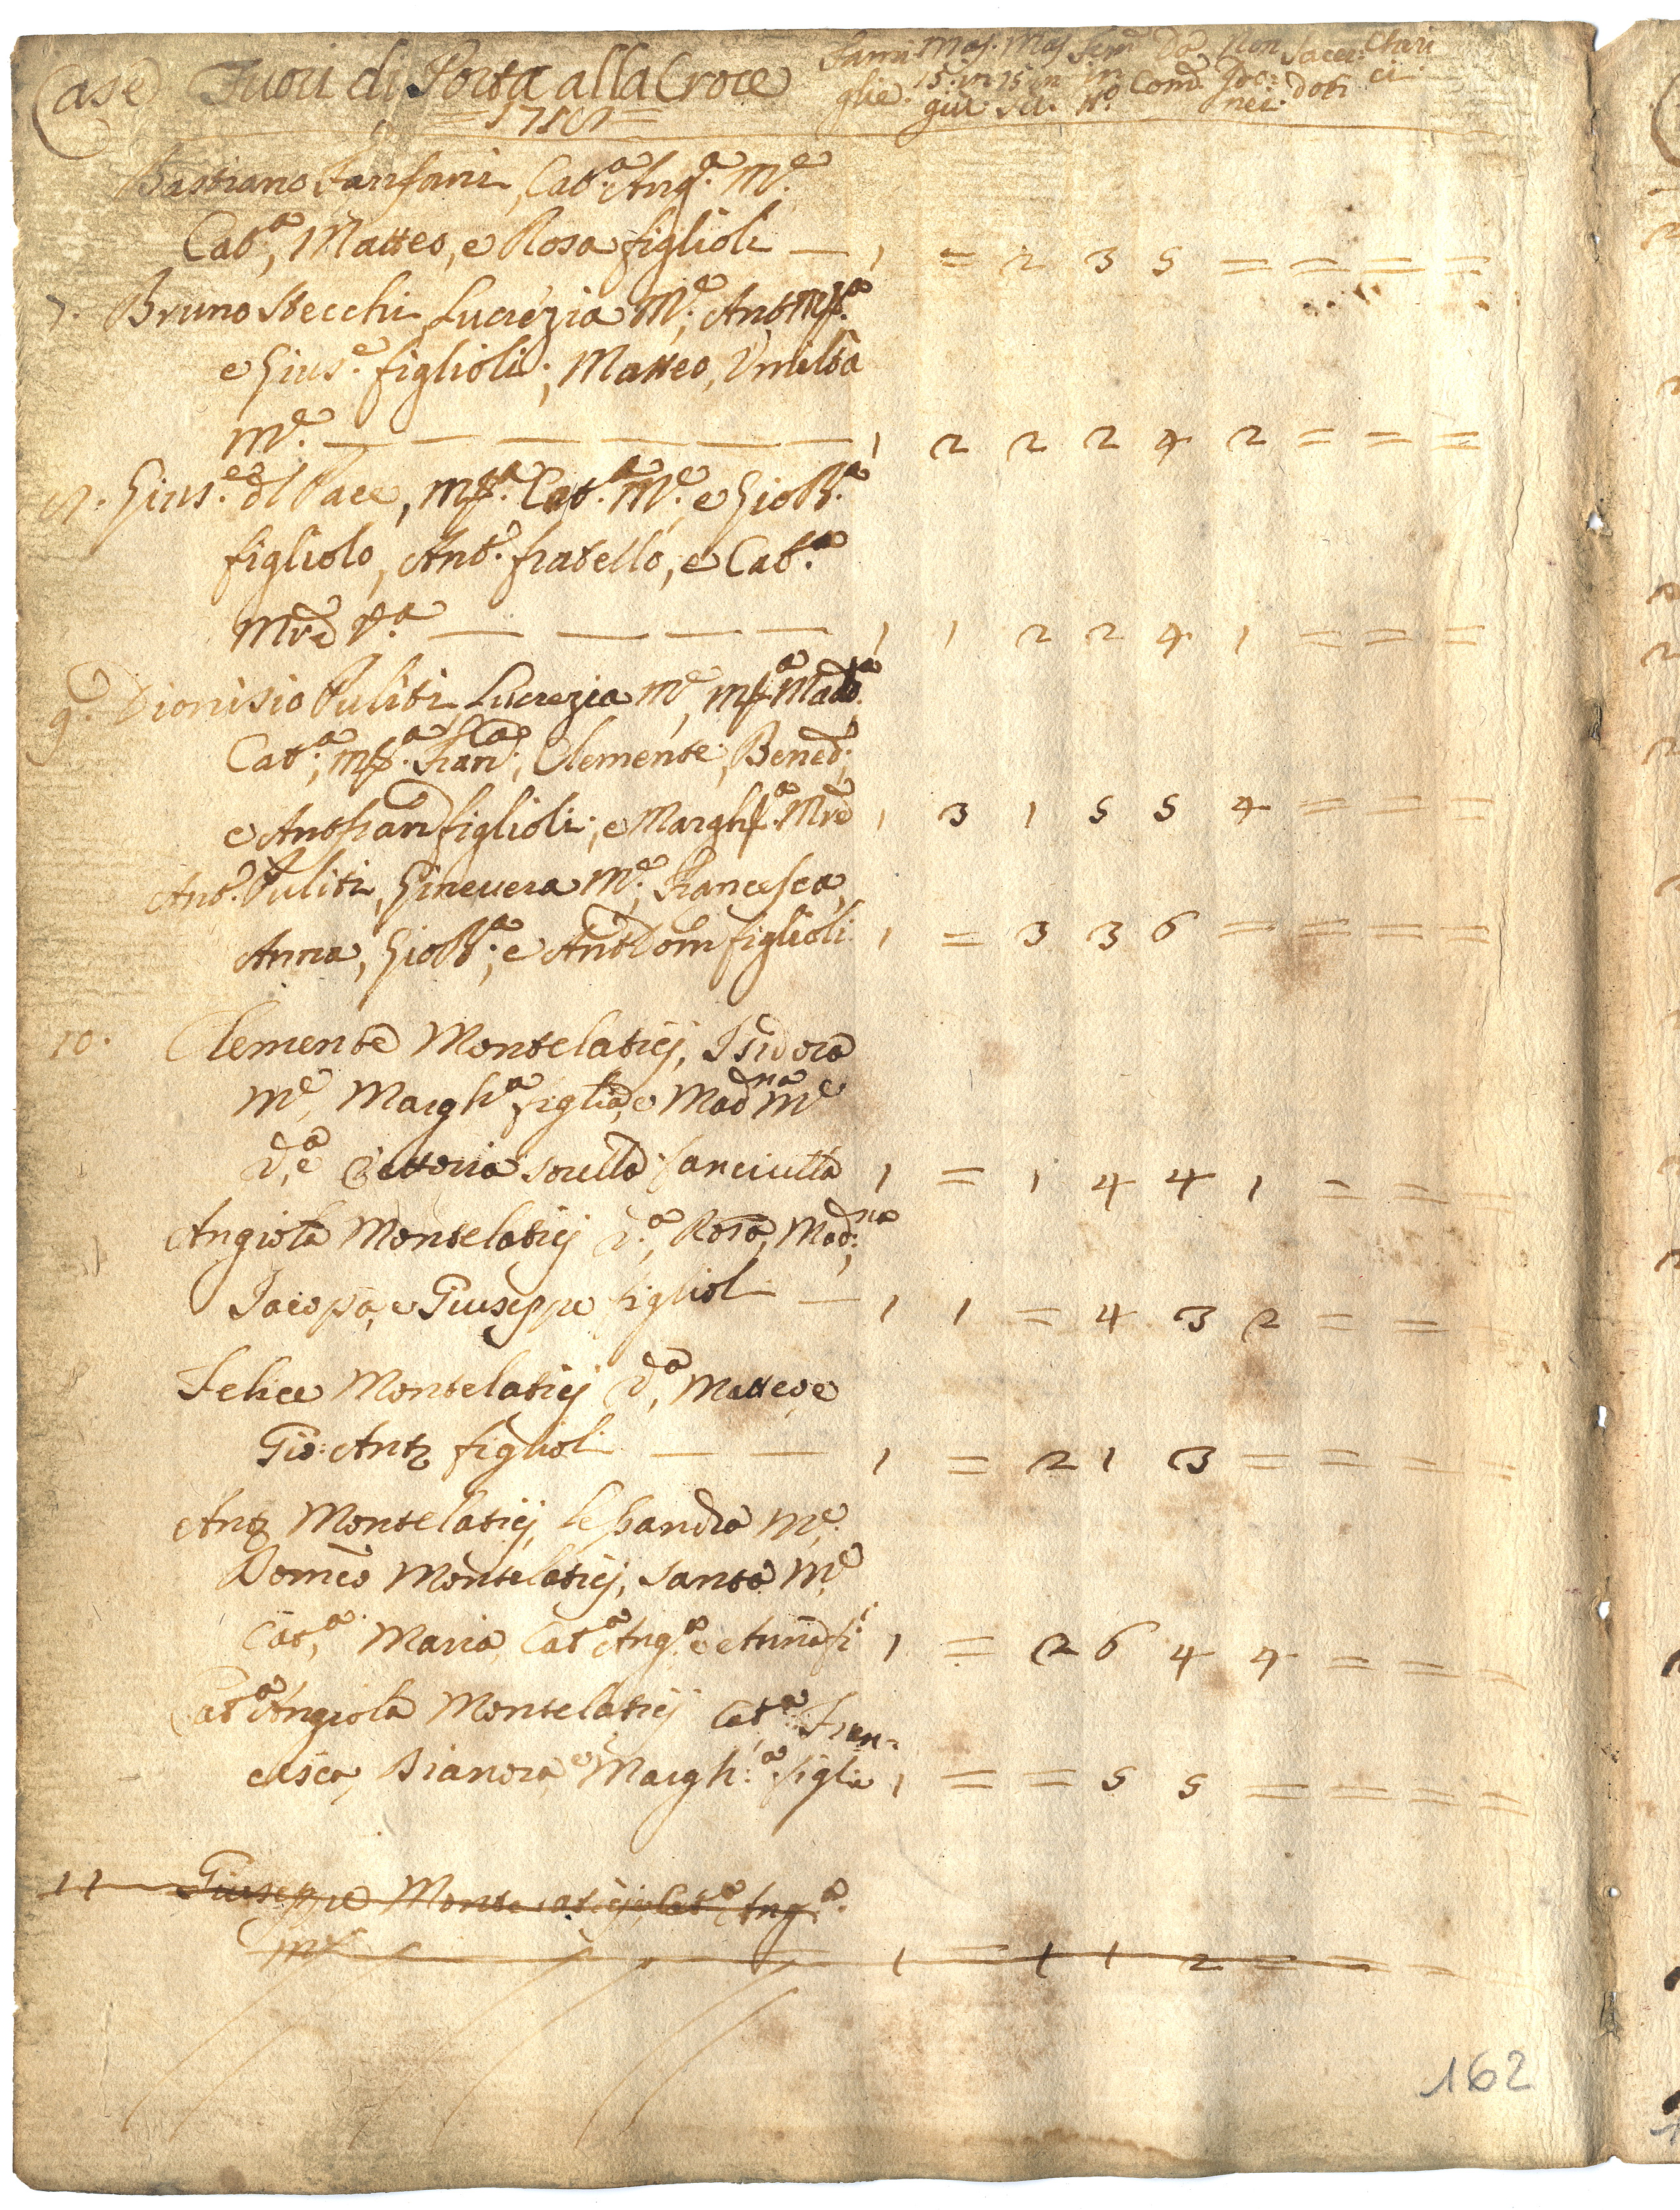 Case Fuori di Porta alla Croce
Fami glie. Mas. 15. in giu Mas 15 in su. Fem. in N.º Da Com.e Non Ido: nei Sacer: doti Chieri ci
Bastiano Fanfani, Cat.a Ang.a M.e
Cat.a, Matteo, e Rosa figlioli — 1 = 2 3 5 = = = =
7. Bruno Stecchi, Lucrezia M.e; Ant. M.a
e Gius.e figlioli; Matteo, Umiltà
M.e — — — — — — 1 2 2 2 4 2 = = =
Gius.e del Pace, M.a Cat.a M.e, e Gio B.a
figliolo, Ant.o fratello, e Cat.a
Mre V.a — — — — 1 1 2 2 4 1 = = =
9. Dionisio Puliti, Lucrezia M.e, M.a Mad.na
Cat.a, M.a Fran.ca, Clemente, Bened.
e Ant fran figlioli; e Margh.a Mre 1 3 1 5 5 4 = = =
Ant.o Puliti, Ginevera M.e, Francesca,
Anna, Gio B.a; e Ant Dom figlioli 1 = 3 3 6 = = = =
10. Clemente Montelaticj, Isidora
M.e, Margh.a figlia, e Mad.na M.e
V.a, e Vettoria sorella fanciulla 1 = 1 4 4 1 = = =
Angiola Montelaticj V.a, Rosa, Mad.na,
Iacopo, e Giuseppe figlioli — 1 1 = 4 3 2 = = =
Felice Montelaticj V.a, Matteo, e
Gio: Ant.o figlioli — — 1 = 2 1 3 = = = =
Ant.o Montelaticj, Lessandra M.e;
Domco Montelaticj, Santa M.e
Cat.a, Maria, Cat.a Ang.a e Anna fi 1 = 2 6 4 4 = = =
Cat.a Angiola Montelaticj Cat.a Fran=
cesca, Bianora e Margh.a figlie 1 = = 5 5 = = = =
11 Giuseppe Montelaticj, Cat.a Ang.a
M.e 1 = 1 1 2 = = = =
162